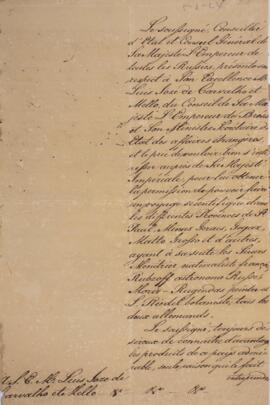 Le soussigné Conseiller
d'Etat et Consul Général de
Sa Majesté L'Empereur de
toutes les Russies, présente ses
respect à Son Excellence Mr
Luis José de Carvalho et
Mello, du Conseil de Sa Ma-
jesté L'Empereur du Bresil
et Son Ministre Secretaire d'
Etat des affaires étrangères,
et le prie de vouloir bien s'inté-
resser auprès de Sa Majesté
Impériale pour lui obtenir
la permission de pouvoir faire
un voyage scientifique dans
les differentes Provinces de St
Paul, Minas Geraes, Goyaz,
Matto Grosso et d'autres,
ayant à sa suite les Sieurs
Ménétrier naturaliste français
Rubzoff astronome Russe
Moritz Rugendas peintre et
L. Riedel botaniste, tous les
deux allemands.
Le soussigné, toujours dé-
sireux de connaitre d'avantage
les produits de ce pays admi-
rable, seule raison qui le fait
entreprendre
à S. E. Mr Luis José de
Carvalho et Mello